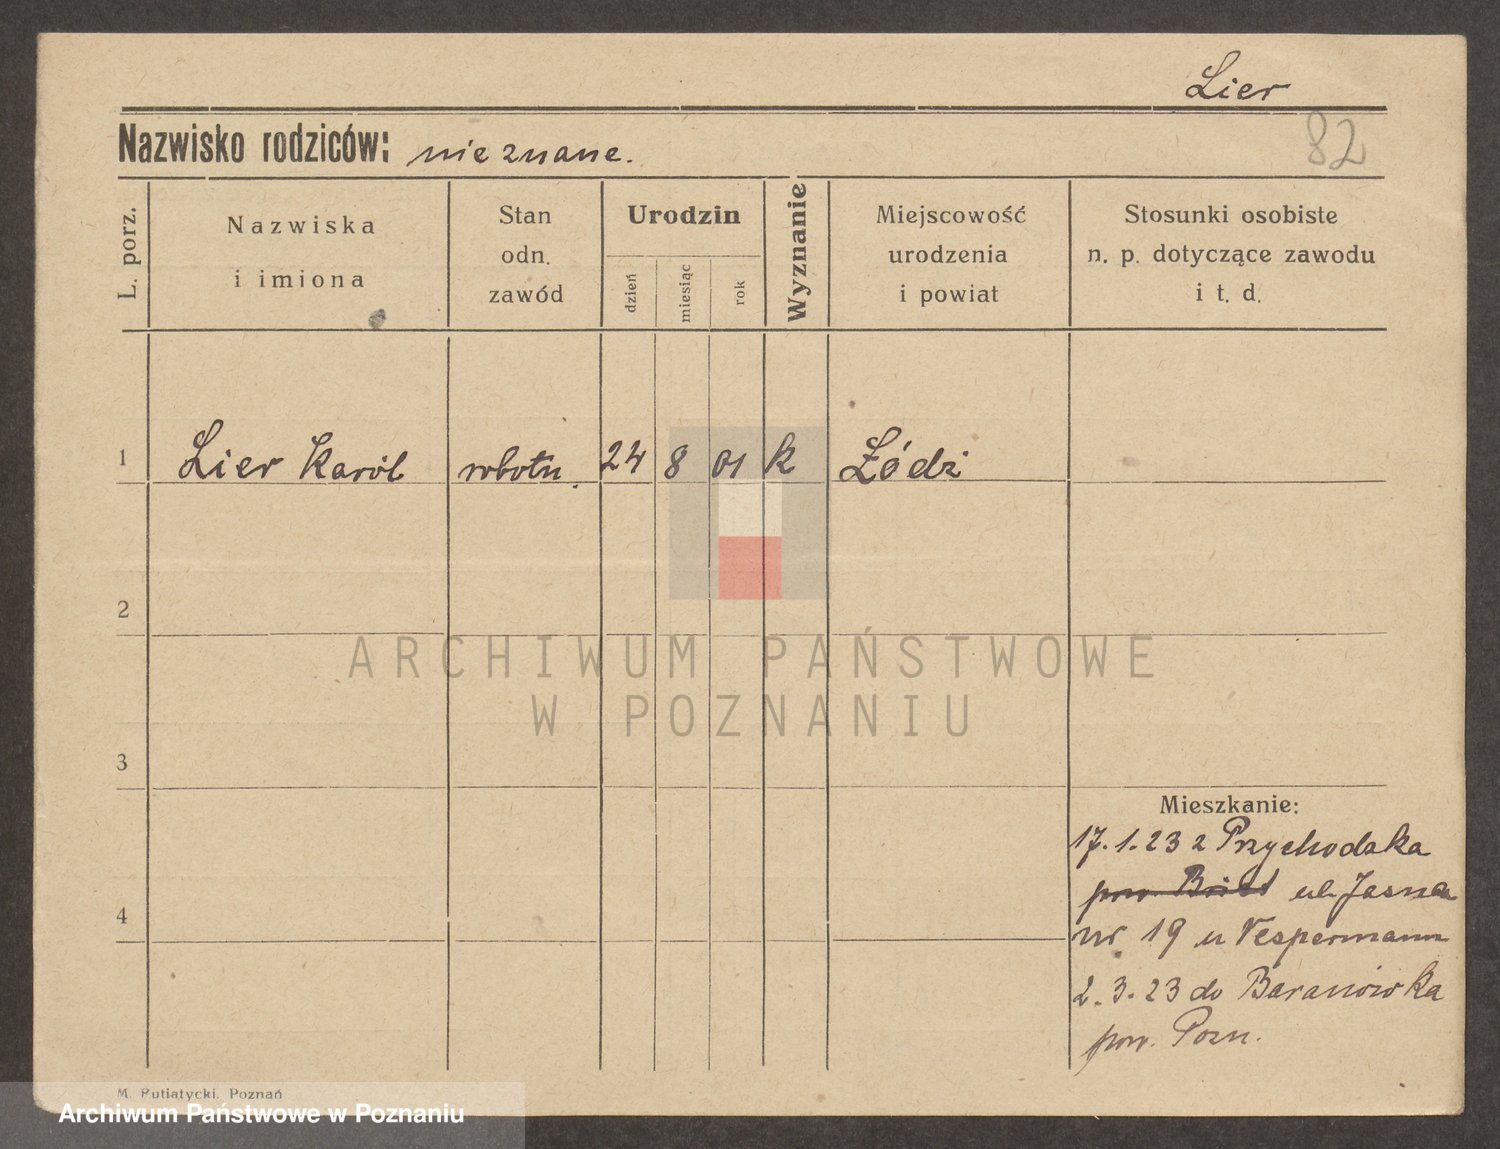 Lier
82
Nazwisko rodziców: nieznane.
L. porz.
Nazwiska
i imiona
Stan
odn.
zawód
Urodzin
dzień
miesiąc
rok
Wyznanie
Miejscowość
urodzenia
i powiat
Stosunki osobiste
n. p. dotyczące zawodu
i t. d.
1 Lier Karól robotn. 24 8 01 k Łódź
2
3
4
Mieszkanie:
17.1.23 z Przychodzka
pow. ul. Jasna
nr 19 u Vespermann
2.3.23 do Baranówka
pow. Pozn.
ARCHIWUM PAŃSTWOWE
W POZNANIU
M. Putiatycki, Poznań
Archiwum Państwowe w Poznaniu